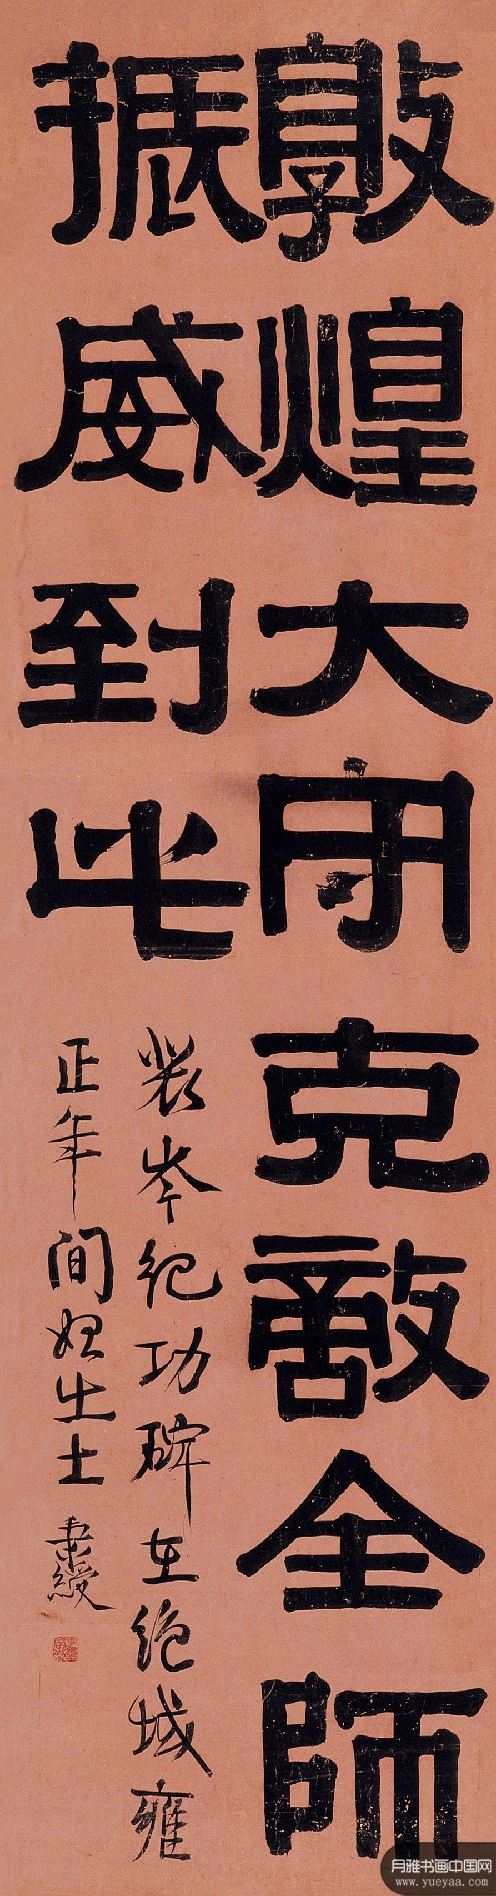 敦煌大守克敵全師
振威到此
裴岑紀功碑在絕域雍
正年間始出土 秉綬
月雅书画中国网
www.yueyaa.com